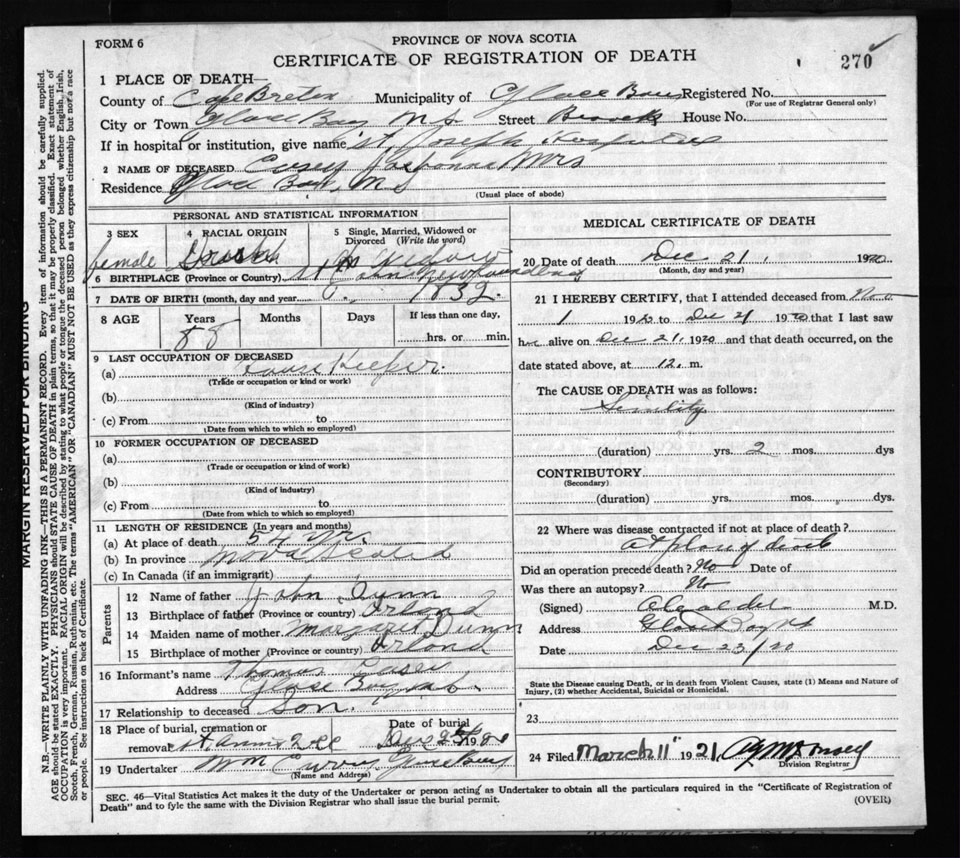 FORM 6
PROVINCE OF NOVA SCOTIA
CERTIFICATE OF REGISTRATION OF DEATH
270
1 PLACE OF DEATH—
County of Cape Breton Municipality of Glace Bay Registered No.
(For use of Registrar General only)
City or Town Glace Bay N S Street House No.
If in hospital or institution, give name St Joseph Hospital
2 NAME OF DECEASED Casey Mrs
Residence Glace Bay, N S
(Usual place of abode)
PERSONAL AND STATISTICAL INFORMATION
3 SEX
female
4 RACIAL ORIGIN
Irish
5 Single, Married, Widowed or Divorced (Write the word)
6 BIRTHPLACE (Province or Country) Newfoundland
7 DATE OF BIRTH (month, day and year) 1832.
8 AGE Years Months Days If less than one day,
88 hrs. or min.
9 LAST OCCUPATION OF DECEASED
(a) House Keeper.
(Trade or occupation or kind or work)
(b)
(Kind of industry)
(c) From to
(Date from which to which so employed)
10 FORMER OCCUPATION OF DECEASED
(a)
(Trade or occupation or kind of work)
(b)
(Kind of industry)
(c) From to
(Date from which to which so employed)
11 LENGTH OF RESIDENCE (In years and months)
(a) At place of death 54 yrs.
(b) In province Nova Scotia
(c) In Canada (if an immigrant)
Parents
12 Name of father John Dunn
13 Birthplace of father (Province or country) Orland
14 Maiden name of mother Margaret Dunn
15 Birthplace of mother (Province or country) Orland
16 Informant's name Thomas Casey
Address Glace Bay
17 Relationship to deceased Son.
18 Place of burial, cremation or removal Date of burial
St Anns 19
19 Undertaker Wm Curren Glace Bay
(Name and Address)
MEDICAL CERTIFICATE OF DEATH
20 Date of death Dec 21, 1920
(Month, day and year)
21 I HEREBY CERTIFY, that I attended deceased from Nov
1 1920 to Dec 21 1920 that I last saw
h alive on Dec 21, 1920 and that death occurred, on the
date stated above, at 12. m.
The CAUSE OF DEATH was as follows:
Senility
(duration) yrs. 2 mos. dys
CONTRIBUTORY
(Secondary)
(duration) yrs. mos. dys.
22 Where was disease contracted if not at place of death?
At place of death
Did an operation precede death? No Date of
Was there an autopsy? No
(Signed) M.D.
Address Glace Bay N S
Date Dec 23/20
State the Disease causing Death, or in death from Violent Causes, state (1) Means and Nature of Injury, (2) whether Accidental, Suicidal or Homicidal.
23
24 Filed March 11" 1921
Division Registrar
SEC. 46—Vital Statistics Act makes it the duty of the Undertaker or person acting as Undertaker to obtain all the particulars required in the "Certificate of Registration of
Death" and to fyle the same with the Division Registrar who shall issue the burial permit. (OVER)
MARGIN RESERVED FOR BINDING
N.B.—WRITE PLAINLY WITH UNFADING INK—THIS IS A PERMANENT RECORD. Every item of information should be carefully supplied.
AGE should be stated EXACTLY. PHYSICIANS should STATE CAUSE OF DEATH in plain terms, so that it may be properly classified. Exact statement of
OCCUPATION is very important. RACIAL ORIGIN will be described by stating to what people or tongue the deceased person belonged, whether English, Irish,
Scotch, French, German, Russian, Ruthenian, etc. The terms "AMERICAN" OR "CANADIAN" MUST NOT BE USED as they express citizenship but not a race
or people. See instructions on back of Certificate.